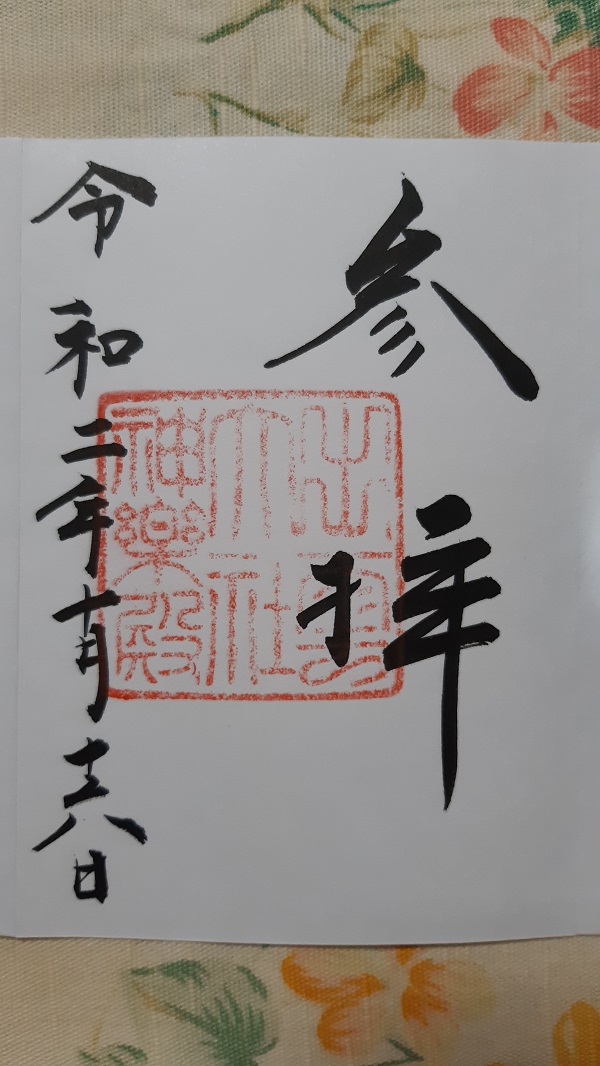 参拝
出雲
大社
神樂殿
令和二年十月十六日